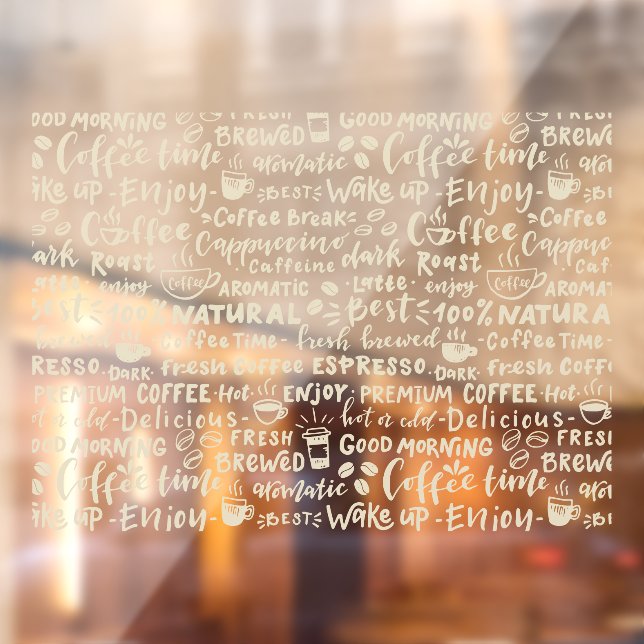 OOD MORNING FRESH GOOD MORNING FRES
BREWED BREWE
Coffee time aromatic Coffee time arom
ke up - Enjoy - BEST Wake up - Enjoy - BE
Coffee Coffee Break Coffee Coffee
dark Roast Cappuccino dark Roast Cappuc
Caffeine Caf
atte · enjoy Coffee AROMATIC · Latte · enjoy Coffee AROMAT
Best 100% NATURAL Best 100% NATURA
brewed - Coffee Time - fresh brewed - Coffee Time -
RESSO · DARK · Fresh Coffee ESPRESSO · DARK · Fresh Coffe
PREMIUM COFFEE · Hot · ENJOY · PREMIUM COFFEE · Hot ·
ot or cold - Delicious - hot or cold - Delicious -
OOD MORNING FRESH GOOD MORNING FRES
BREWED BREWE
Coffee time aromatic Coffee time arom
ke up - Enjoy - BEST Wake up - Enjoy - BE